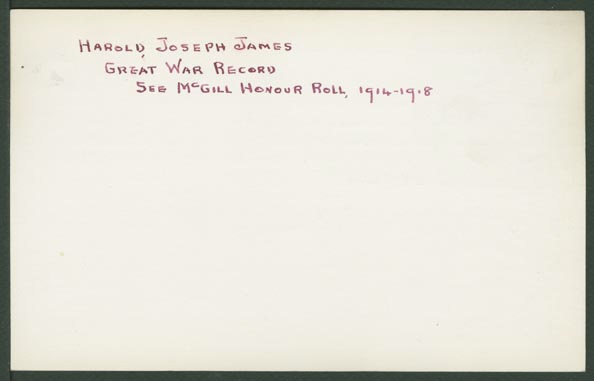 HAROLD, JOSEPH JAMES
GREAT WAR RECORD
SEE McGILL HONOUR ROLL, 1914-1918